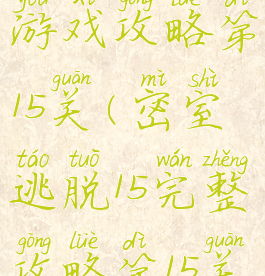 yóu xì gōng lüè dì
游戏攻略第
guān mì shì
15关(密室
táo tuō wán zhěng
逃脱15完整
gōng lüè dì guān
攻略第15关